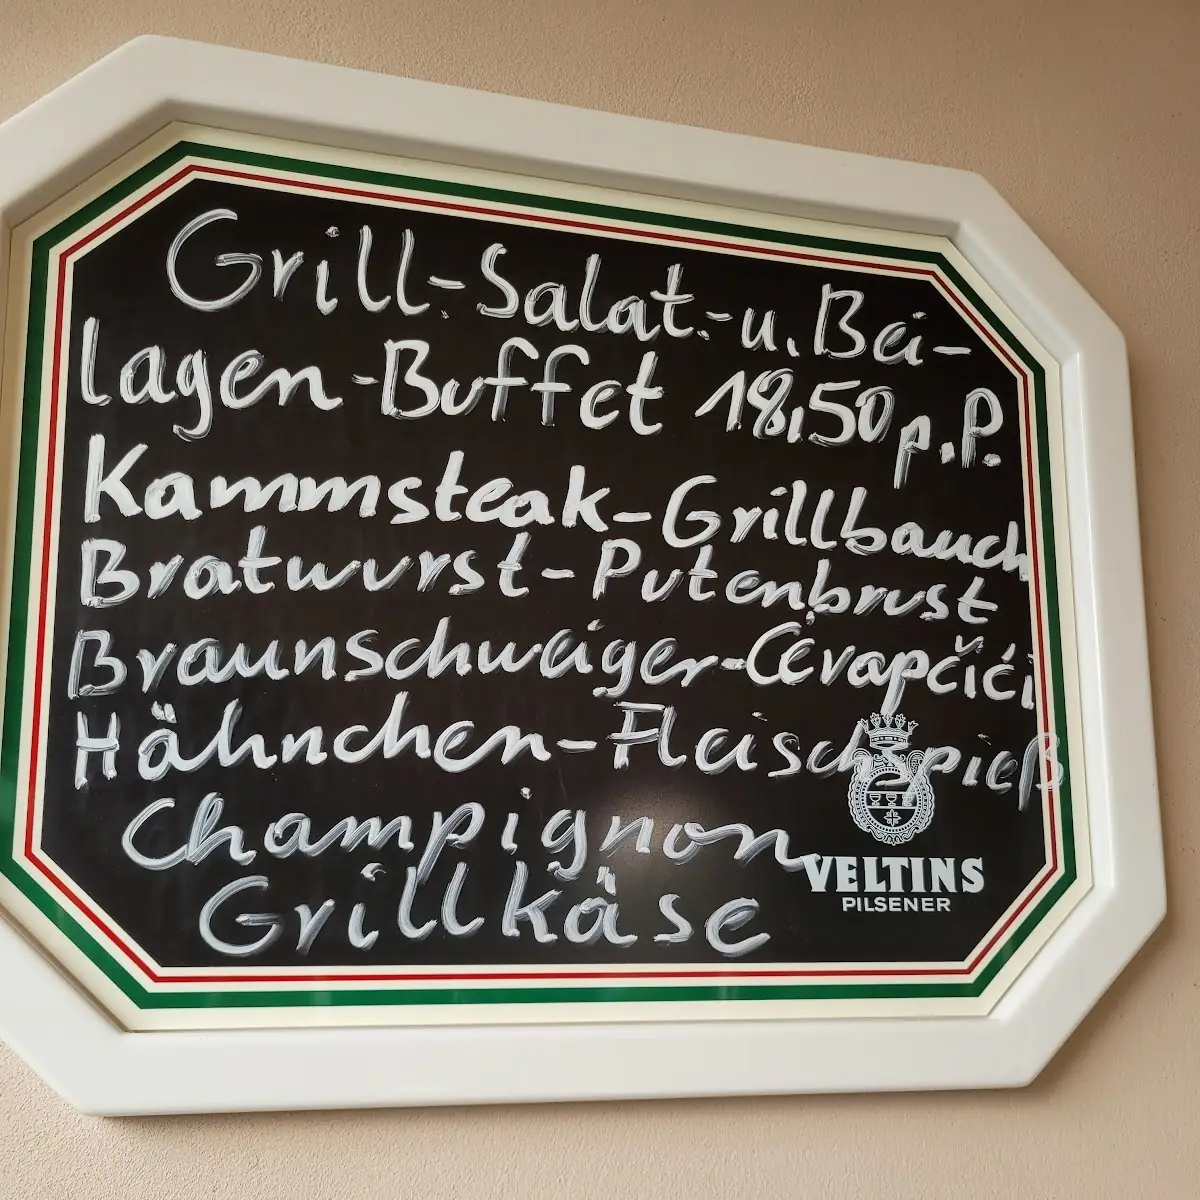 Grill-Salat-u. Bei-
lagen-Buffet 18,50 p.P.
Kammsteak-Grillbauch
Bratwurst-Putenbrust
Braunschweiger-Cevapčići
Hähnchen-Fleischspieß
Champignon
Grillkäse
VELTINS
PILSENER